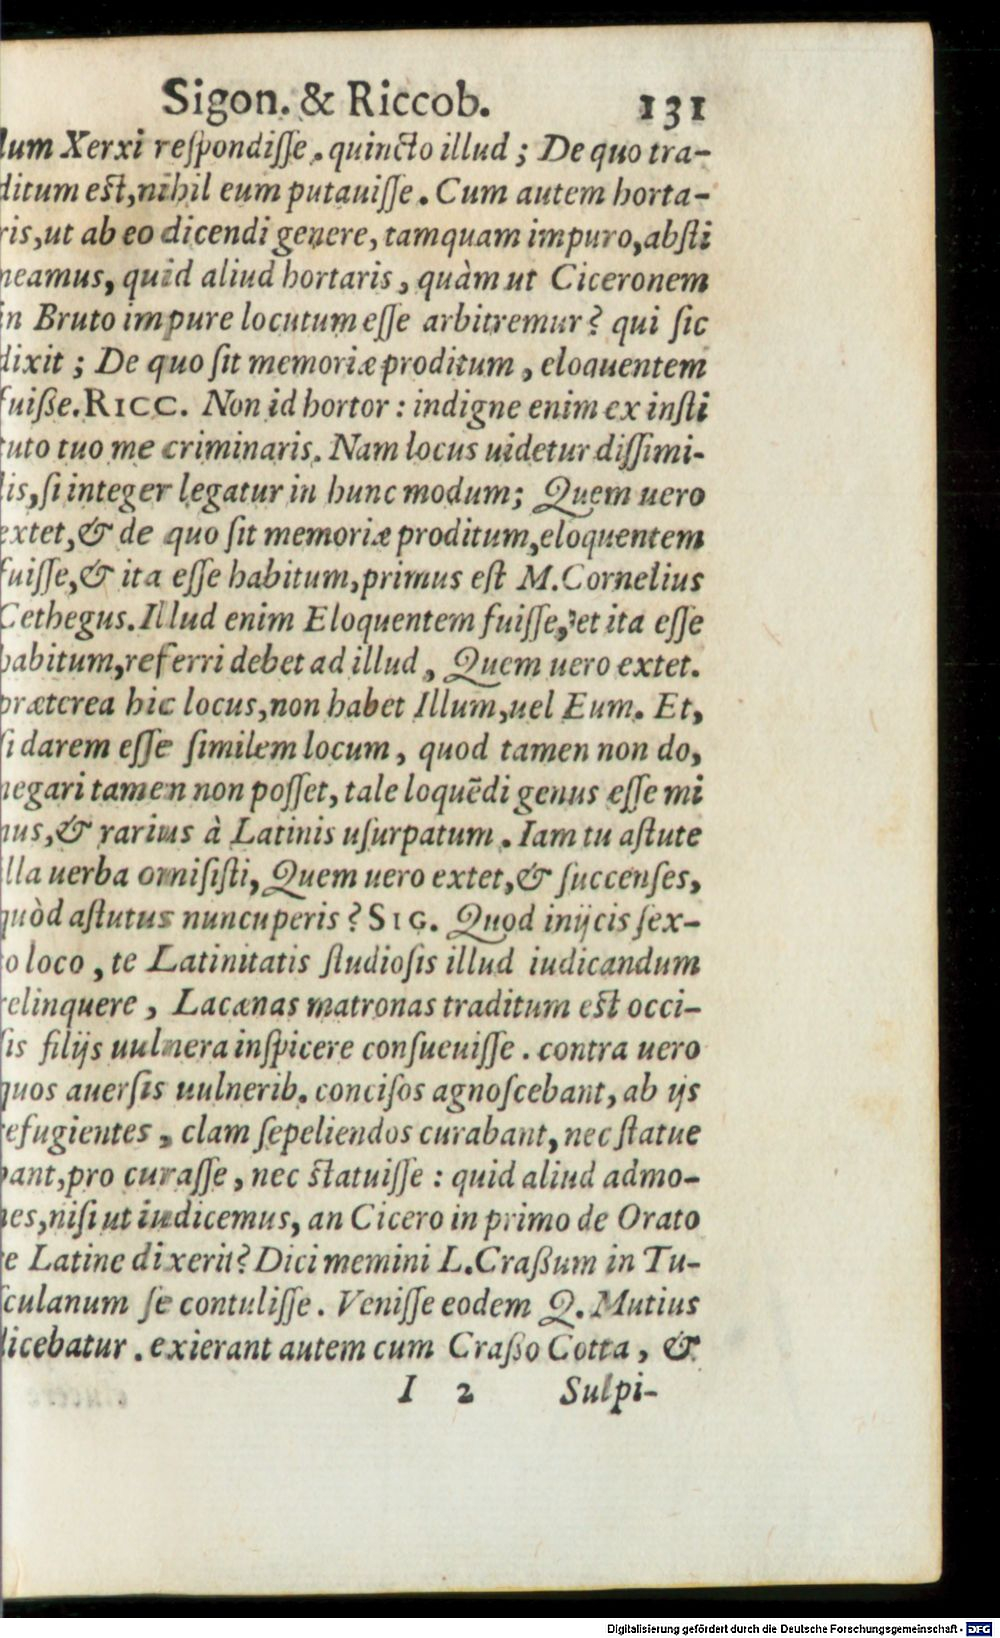 Sigon. & Riccob. 131
lum Xerxi reſpondiſſe. quincto illud; De quo tra-
ditum eſt, nihil eum putauiſſe. Cum autem horta-
ris, ut ab eo dicendi genere, tamquam impuro, abſti
neamus, quid aliud hortaris, quàm ut Ciceronem
in Bruto impure locutum eſſe arbitremur? qui ſic
dixit; De quo ſit memoriæ proditum, eloquentem
fuiße. RICC. Non id hortor: indigne enim ex inſti
tuto tuo me criminaris. Nam locus uidetur diſſimi-
lis, ſi integer legatur in hunc modum; Quem uero
extet, & de quo ſit memoriæ proditum, eloquentem
fuiſſe, & ita eſſe habitum, primus eſt M. Cornelius
Cethegus. Illud enim Eloquentem fuiſſe, et ita eſſe
habitum, referri debet ad illud, Quem uero extet.
præterea hic locus, non habet Illum, uel Eum. Et,
ſi darem eſſe ſimilem locum, quod tamen non do,
negari tamen non poſſet, tale loquēdi genus eſſe mi
nus, & rarius à Latinis uſurpatum. Iam tu aſtute
illa uerba omiſiſti, Quem uero extet, & ſuccenſes,
quòd aſtutus nuncuperis? SIG. Quod inijcis ſex-
to loco, te Latinitatis ſtudioſis illud iudicandum
relinquere, Lacænas matronas traditum eſt occi-
ſis filijs uulnera inſpicere conſueuiſſe. contra uero
quos auerſis uulnerib. conciſos agnoſcebant, ab ijs
refugientes, clam ſepeliendos curabant, nec ſtatue
bant, pro curaſſe, nec ſtatuiſſe: quid aliud admo-
nes, niſi ut iudicemus, an Cicero in primo de Orato
re Latine dixerit? Dici memini L. Craßum in Tu-
ſculanum ſe contuliſſe. Veniſſe eodem Q. Mutius
dicebatur. exierant autem cum Craßo Cotta, &
I 2 Sulpi-
Digitalisierung gefördert durch die Deutsche Forschungsgemeinschaft - DFG